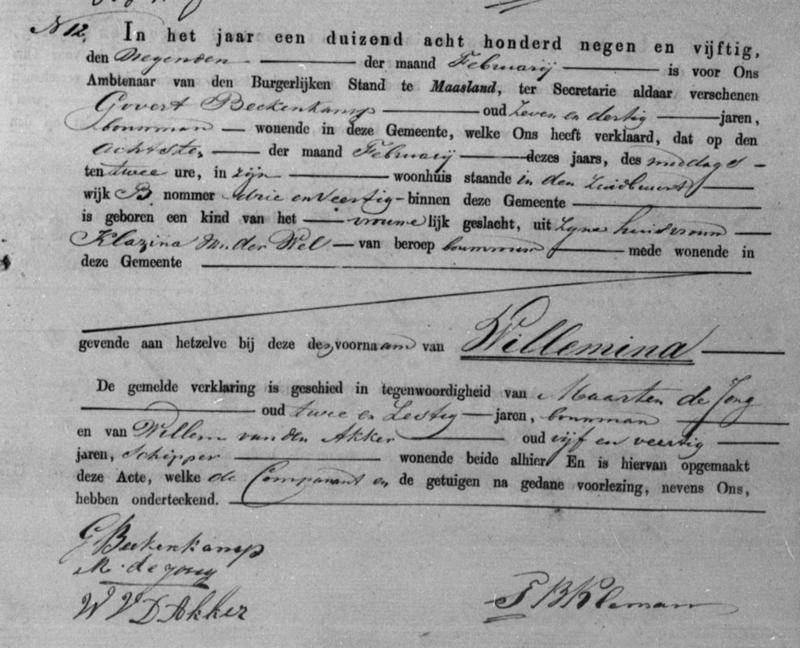 N 12. In het jaar een duizend acht honderd negen en vijftig,
den Negenden der maand Februarij is voor Ons
Ambtenaar van den Burgerlijken Stand te Maasland, ter Secretarie aldaar verschenen
Govert Beekenkamp oud Zeven en dertig jaren,
bouwman wonende in deze Gemeente, welke Ons heeft verklaard, dat op den
Achtsten der maand Februarij dezes jaars, des middags
ten twee ure, in zijn woonhuis staande in den Zuidbuurt
wijk B nommer drie en veertig binnen deze Gemeente
is geboren een kind van het vrouwelijk geslacht, uit Zijne huisvrouw
Klazina van der Wel van beroep bouwman mede wonende in
deze Gemeente
gevende aan hetzelve bij deze den voornaam van Willemina
De gemelde verklaring is geschied in tegenwoordigheid van Maarten de Jong
oud twee en Zestig jaren, bouwman
en van Willem van den Akker oud vijf en veertig
jaren, Schipper wonende beide alhier En is hiervan opgemaakt
deze Acte, welke de Comparant en de getuigen na gedane voorlezing, nevens Ons,
hebben onderteekend.
G Beekenkamp
M. de Jong
W V D Akker